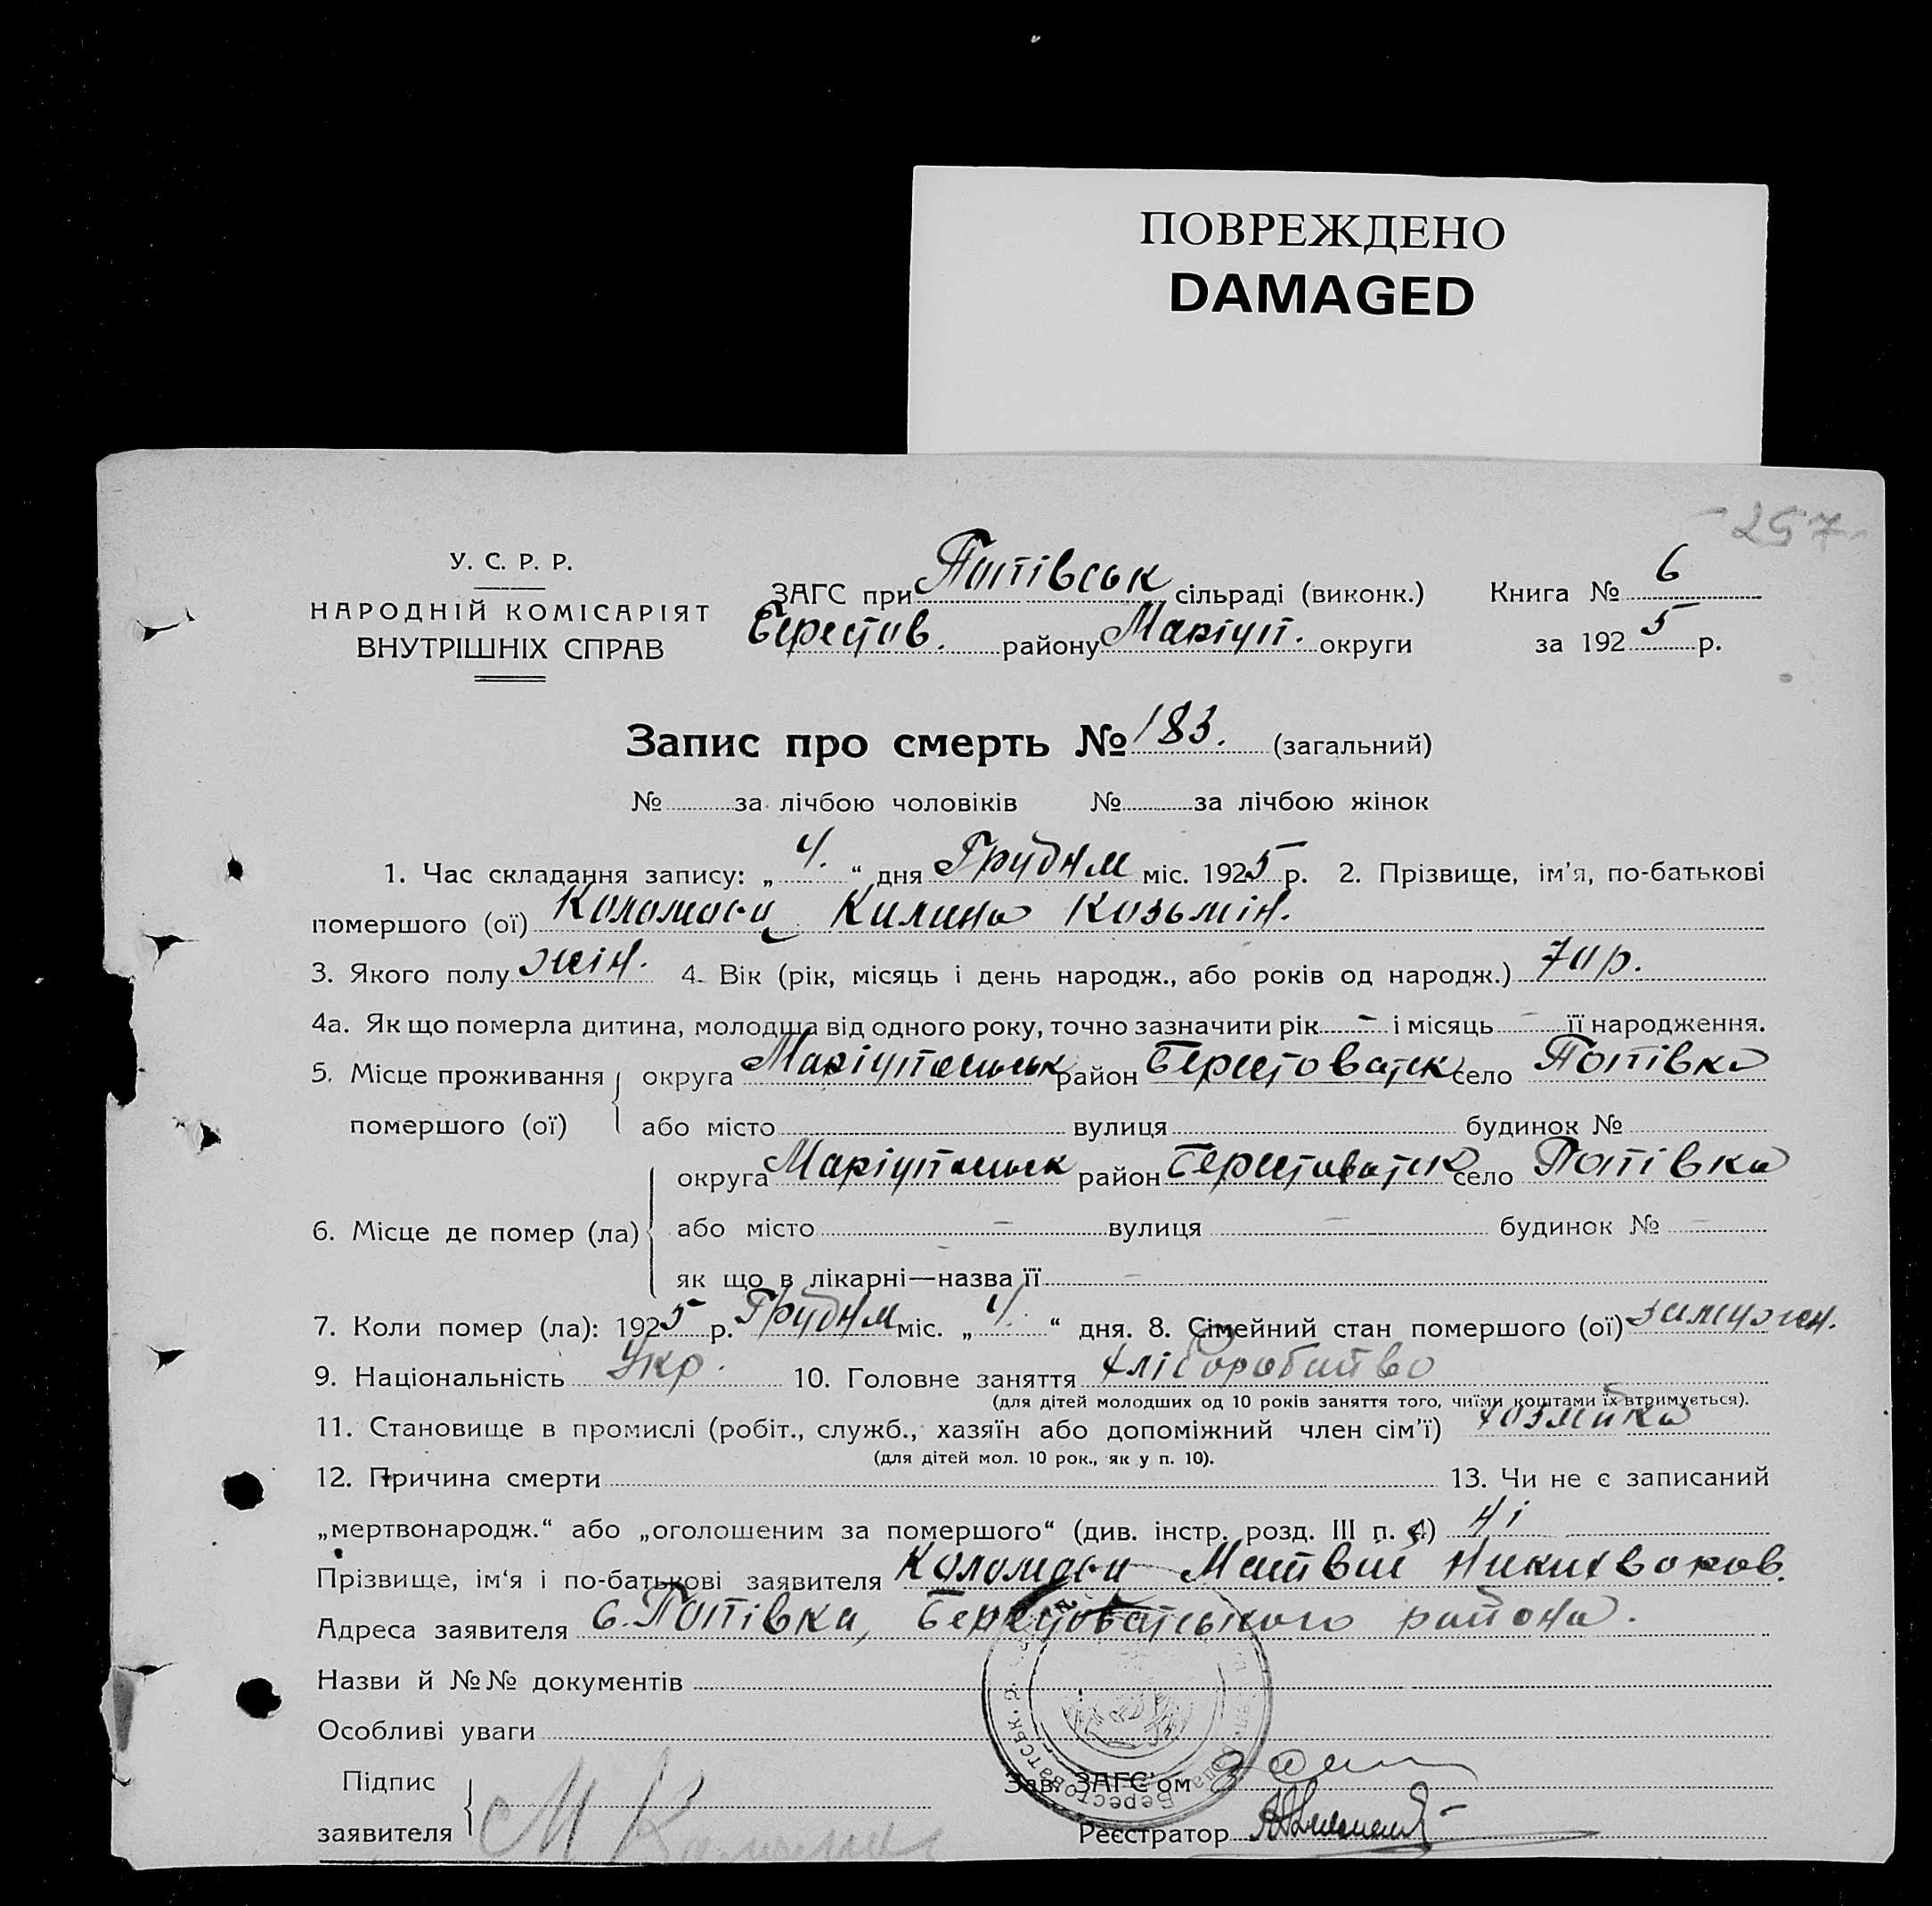 ПОВРЕЖДЕНО
DAMAGED
257
У. С. Р. Р.
НАРОДНІЙ КОМІСАРІЯТ
ВНУТРІШНІХ СПРАВ
ЗАГС при Попівськ сільраді (виконк.) Книга № 6
Берестов. району Маріуп. округи за 1925 р.
Запис про смерть № 183. (загальний)
№ за лічбою чоловіків № за лічбою жінок
1. Час складання запису: „ 4. “ дня Грудня міс. 1925 р. 2. Прізвище, ім’я, по-батькові
помершого (ої) Килина Козьмін.
3. Якого полу жін. 4. Вік (рік, місяць і день народж., або років од народж.) 70 р.
4а. Як що померла дитина, молодша від одного року, точно зазначити рік - і місяць - її народження.
5. Місце проживання округа Маріупольськ район Берестоватск село Попівка
помершого (ої) або місто вулиця будинок №
округа Маріупольськ район Берестоватск село Попівка
6. Місце де помер (ла) або місто - вулиця - будинок № -
як що в лікарні—назва її -
7. Коли помер (ла): 1925 р. Грудня міс. „ 4. “ дня. 8. Сімейний стан помершого (ої) замужен.
9. Національність Укр. 10. Головне заняття хліборобство
(для дітей молодших од 10 років заняття того, чиїми коштами їх втримується).
11. Становище в промислі (робіт., служб., хазяїн або допоміжний член сім’ї)
(для дітей мол. 10 рок., як у п. 10).
12. Причина смерти 13. Чи не є записаний
„мертвонародж.“ або „оголошеним за помершого“ (див. інстр. розд. III п. 4) Ні
Прізвище, ім‘я і по-батькові заявителя Матвій Никихворов.
Адреса заявителя с. Попівка, Берестоватського района.
Назви й №№ документів
Особливі уваги
Підпис
заявителя
Зав. ЗАГС’ом
Реєстратор